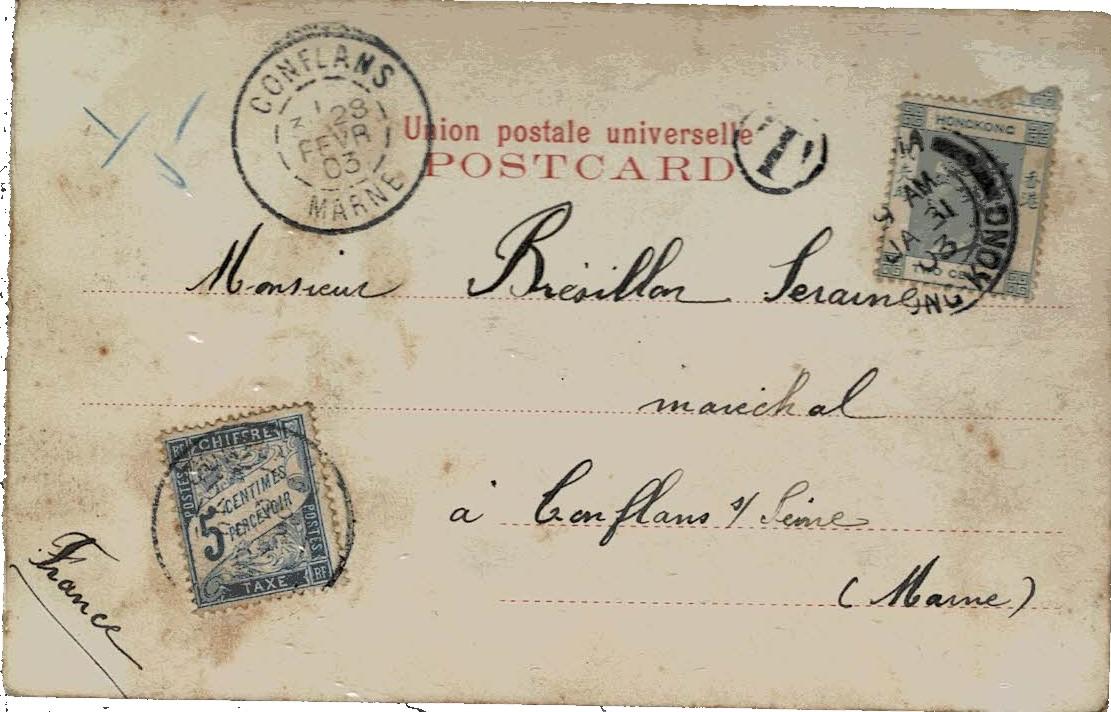 CONFLANS
28
FEVR
03
MARNE
Union postale universelle
POSTCARD
T
HONGKONG
香港
TWO CE
AM
JA 31
03
ONG KONG
Monsieur Brésillon Seraine
maréchal
à Conflans s/ Seine
(Marne)
France
RF CHIFFRE
POSTES
5 CENTIMES
À
PERCEVOIR
POSTES
TAXE RF